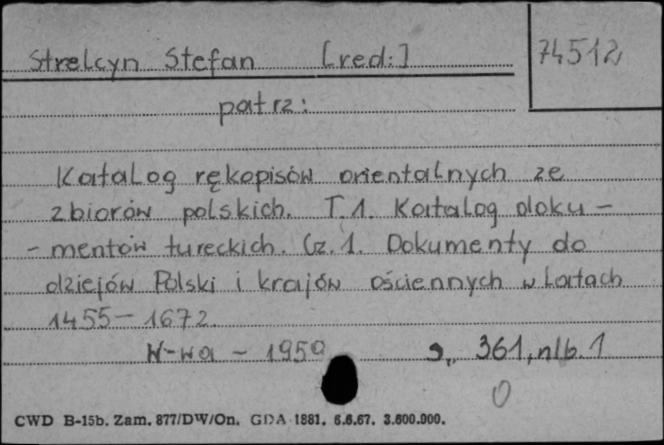 Strelcyn Stefan [red:]
74512
patrz:
Katalog rękopisów orientalnych ze
zbiorów polskich. T.1. Katalog doku-
-mentów tureckich. Cz.1. Dokumenty do
dziejów Polski i krajów ościennych w latach
1455-1672.
W-wa - 1959 s. 361, nlb. 1
0
CWD B-15b. Zam. 877/DW/On. GDA 1881. 6.6.67. 3.600.000.